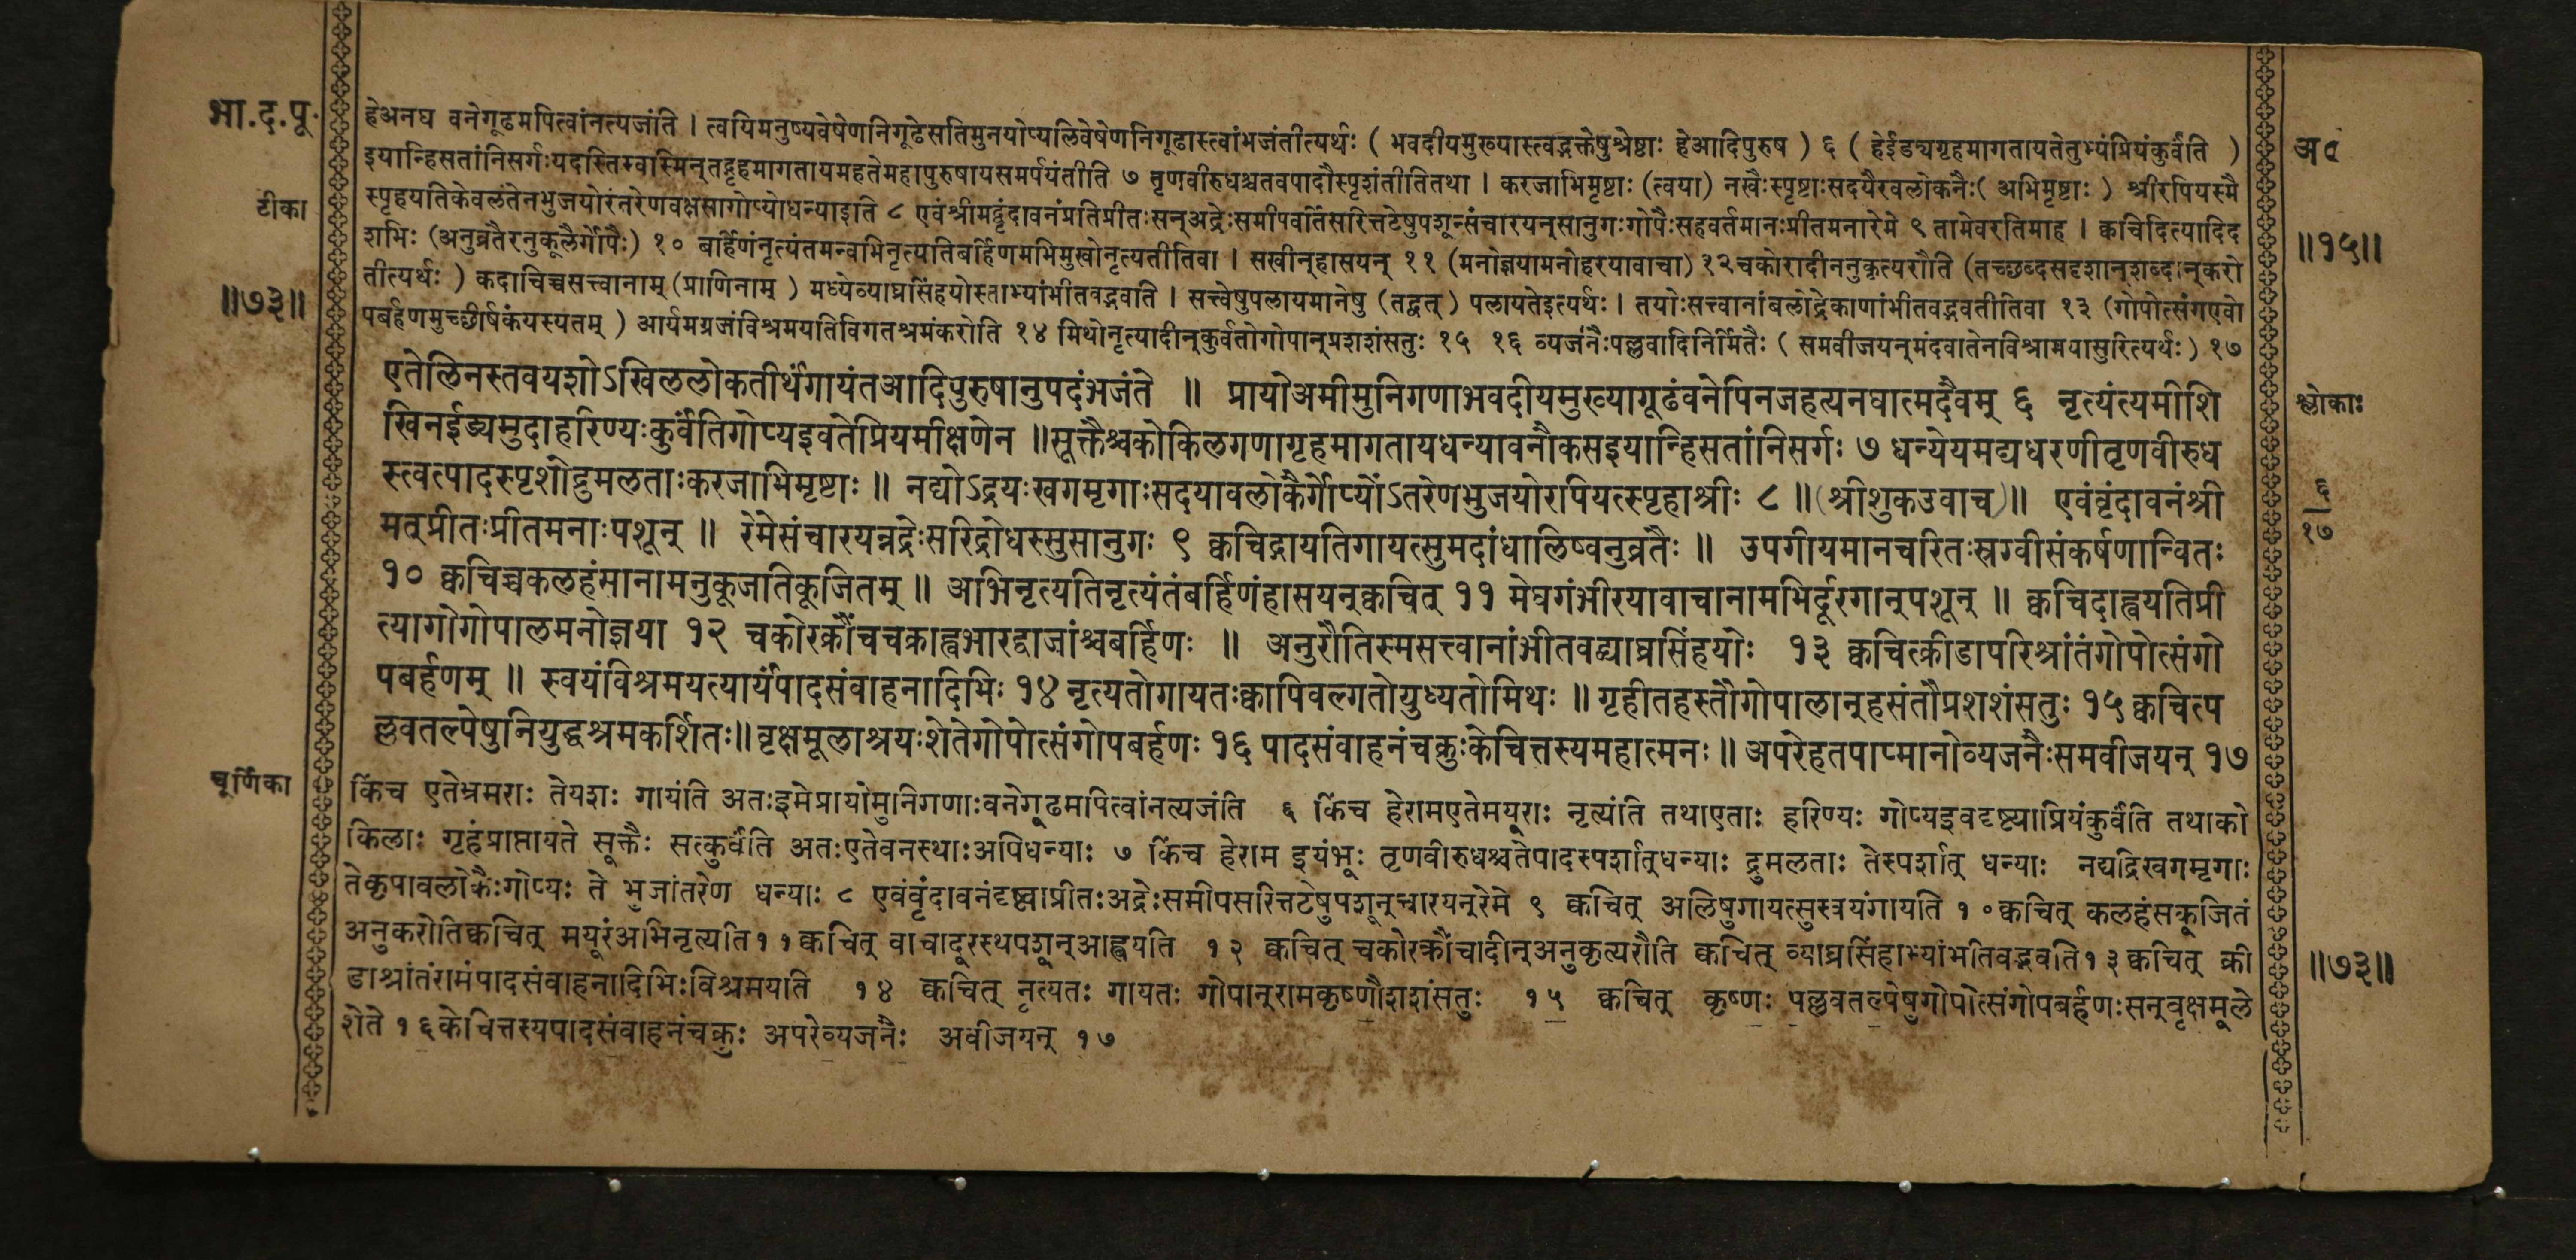 भा.द.पू.
टीका
॥७३॥
हेअनघ वनेगूढमपित्वांनत्यजंति । त्वयिमनुष्यवेषेणनिगूढेसतिमुनयोप्यलिवेषेणनिगूढास्त्वांभजंतीत्यर्थः ( भवदीयमुख्यास्त्वद्भक्तेषुश्रेष्ठाः हेआदिपुरुष ) ६ ( हेईड्यगृहमागतायतेतुभ्यंप्रियंकुर्वंति )
इयान्हिसतांनिसर्गःयदस्तिस्वास्मिन्तद्गृहमागतायमहतेमहापुरुषायसमर्पयंतीति ७ तृणवीरुधश्चतवपादौस्पृशंतीतितथा । करजाभिमृष्टाः (त्वया) नखैःस्पृष्टाःसदयैरवलोकनैः( अभिमृष्टाः ) श्रीरपियस्मै
स्पृहयतिकेवलंतेनभुजयोरंतरेणवक्षसागोप्योधन्याइति ८ एवंश्रीमद्वृंदावनंप्रतिप्रीतःसन्अद्रेःसमीपवर्तिसरित्तटेषुपशून्संचारयन्सानुगःगोपैःसहवर्तमानःप्रीतमनारेमे ९ तामेवरतिमाह । क्वचिदित्यादिद
शभिः (अनुव्रतैरनुकूलैर्गोपैः) १० बर्हिणंनृत्यंतमन्वभिनृत्यतिबर्हिणमभिमुखोनृत्यतीतिवा । सखीन्हासयन् ११ (मनोज्ञयामनोहरयावाचा) १२चकोरादीननुकृत्यरौति (तच्छब्दसदृशान्शब्दान्करो
तीत्यर्थः ) कदाचिच्चसत्त्वानाम् (प्राणिनाम् ) मध्येव्याघ्रसिंहयोस्ताभ्यांभीतवद्भवति । सत्त्वेषुपलायमानेषु (तद्वत् ) पलायतेइत्यर्थः । तयोःसत्त्वानांबलोद्रेकाणांभीतवद्भवतीतिवा १३ (गोपोत्संगएवो
पबर्हणमुच्छीर्षकंयस्यतम् ) आर्यमग्रजंविश्रमयतिविगतश्रमंकरोति १४ मिथोनृत्यादीन्कुर्वतोगोपान्प्रशशंसतुः १५ १६ व्यजनैःपल्लवादिनिर्मितैः ( समवीजयन्मंदवातेनविश्रामयासुरित्यर्थः ) १७
एतेलिनस्तवयशोऽखिललोकतीर्थंगायंतआदिपुरुषानुपदंभजंते ॥ प्रायोअमीमुनिगणाभवदीयमुख्यागूढंवनेपिनजहत्यनघात्मदैवम् ६ नृत्यंत्यमीशि
खिनईड्यमुदाहरिण्यःकुर्वंतिगोप्यइवतेप्रियमीक्षणेन ॥सूक्तैश्चकोकिलगणागृहमागतायधन्यावनौकसइयान्हिसतांनिसर्गः ७ धन्येयमद्यधरणीतृणवीरुध
स्त्वत्पादस्पृशोद्रुमलताःकरजाभिमृष्टाः ॥ नद्योऽद्रयःखगमृगाःसदयावलोकैर्गोप्योंऽतरेणभुजयोरपियत्स्पृहाश्रीः ८ ॥(श्रीशुकउवाच)॥ एवंवृंदावनंश्री
मत्प्रीतःप्रीतमनाःपशून् ॥ रेमेसंचारयन्नद्रेःसरिद्रोधस्सुसानुगः ९ क्वचिद्गायतिगायत्सुमदांधालिष्वनुव्रतैः ॥ उपगीयमानचरितःस्रग्वीसंकर्षणान्वितः
१० क्वचिच्चकलहंसानामनुकूजतिकूजितम् ॥ अभिनृत्यतिनृत्यंतंबर्हिणंहासयन्क्वचित् ११ मेघगंभीरयावाचानामभिर्दूरगान्पशून् ॥ क्वचिदाह्वयतिप्री
त्यागोगोपालमनोज्ञया १२ चकोरक्रौंचचक्राह्वभारद्वाजांश्चबर्हिणः ॥ अनुरौतिस्मसत्त्वानांभीतवद्व्याघ्रसिंहयोः १३ क्वचित्क्रीडापरिश्रांतंगोपोत्संगो
पबर्हणम् ॥ स्वयंविश्रमयत्यार्यंपादसंवाहनादिभिः १४ नृत्यतोगायतःक्वापिवल्गतोयुध्यतोमिथः ॥ गृहीतहस्तौगोपालान्हसंतौप्रशशंसतुः १५ क्वचित्प
ल्लवतल्पेषुनियुद्धश्रमकर्शितः॥ वृक्षमूलाश्रयःशेतेगोपोत्संगोपबर्हणः १६ पादसंवाहनंचक्रुःकेचित्तस्यमहात्मनः ॥ अपरेहतपाप्मानोव्यजनैःसमवीजयन् १७
चूर्णिका
किंच एतेभ्रमराः तेयशः गायंति अतःइमेप्रायोमुनिगणाःवनेगूढमपित्वांनत्यजंति ६ किंच हेरामएतेमयूराः नृत्यंति तथाएताः हरिण्यः गोप्यइवदृष्ट्याप्रियंकुर्वंति तथाको
किलाः गृहंप्राप्तायते सूक्तैः सत्कुर्वंति अतःएतेवनस्थाःअपिधन्याः ७ किंच हेराम इयंभूः तृणवीरुधश्चतेपादस्पर्शात्धन्याः द्रुमलताः तेस्पर्शात् धन्याः नद्यद्रिखगमृगाः
तेकृपावलोकैःगोप्यः ते भुजांतरेण धन्याः ८ एवंवृंदावनंदृष्ट्वाप्रीतःअद्रेःसमीपसरित्तटेषुपशून्चारयन्रेमे ९ क्वचित् अलिषुगायत्सुस्वयंगायति १०क्वचित् कलहंसकूजितं
अनुकरोतिक्वचित् मयूरंअभिनृत्यति११क्वचित् वाचादूरस्थपशून्आह्वयति १२ क्वचित् चकोरक्रौंचादीन्अनुकृत्यरौति क्वचित् व्याघ्रसिंहाभ्यांभतिवद्भवति१३क्वचित् क्री
डाश्रांतंरामंपादसंवाहनादिभिःविश्रमयति १४ क्वचित् नृत्यतः गायतः गोपान्रामकृष्णौशशंसतुः १५ क्वचित् कृष्णः पल्लवतल्पेषुगोपोत्संगोपबर्हणःसन्वृक्षमूले
शेते १६केचित्तस्यपादसंवाहनंचक्रुः अपरेव्यजनैः अवीजयन् १७
अ०
॥१५॥
श्लोकाः
६
१७
॥७३॥